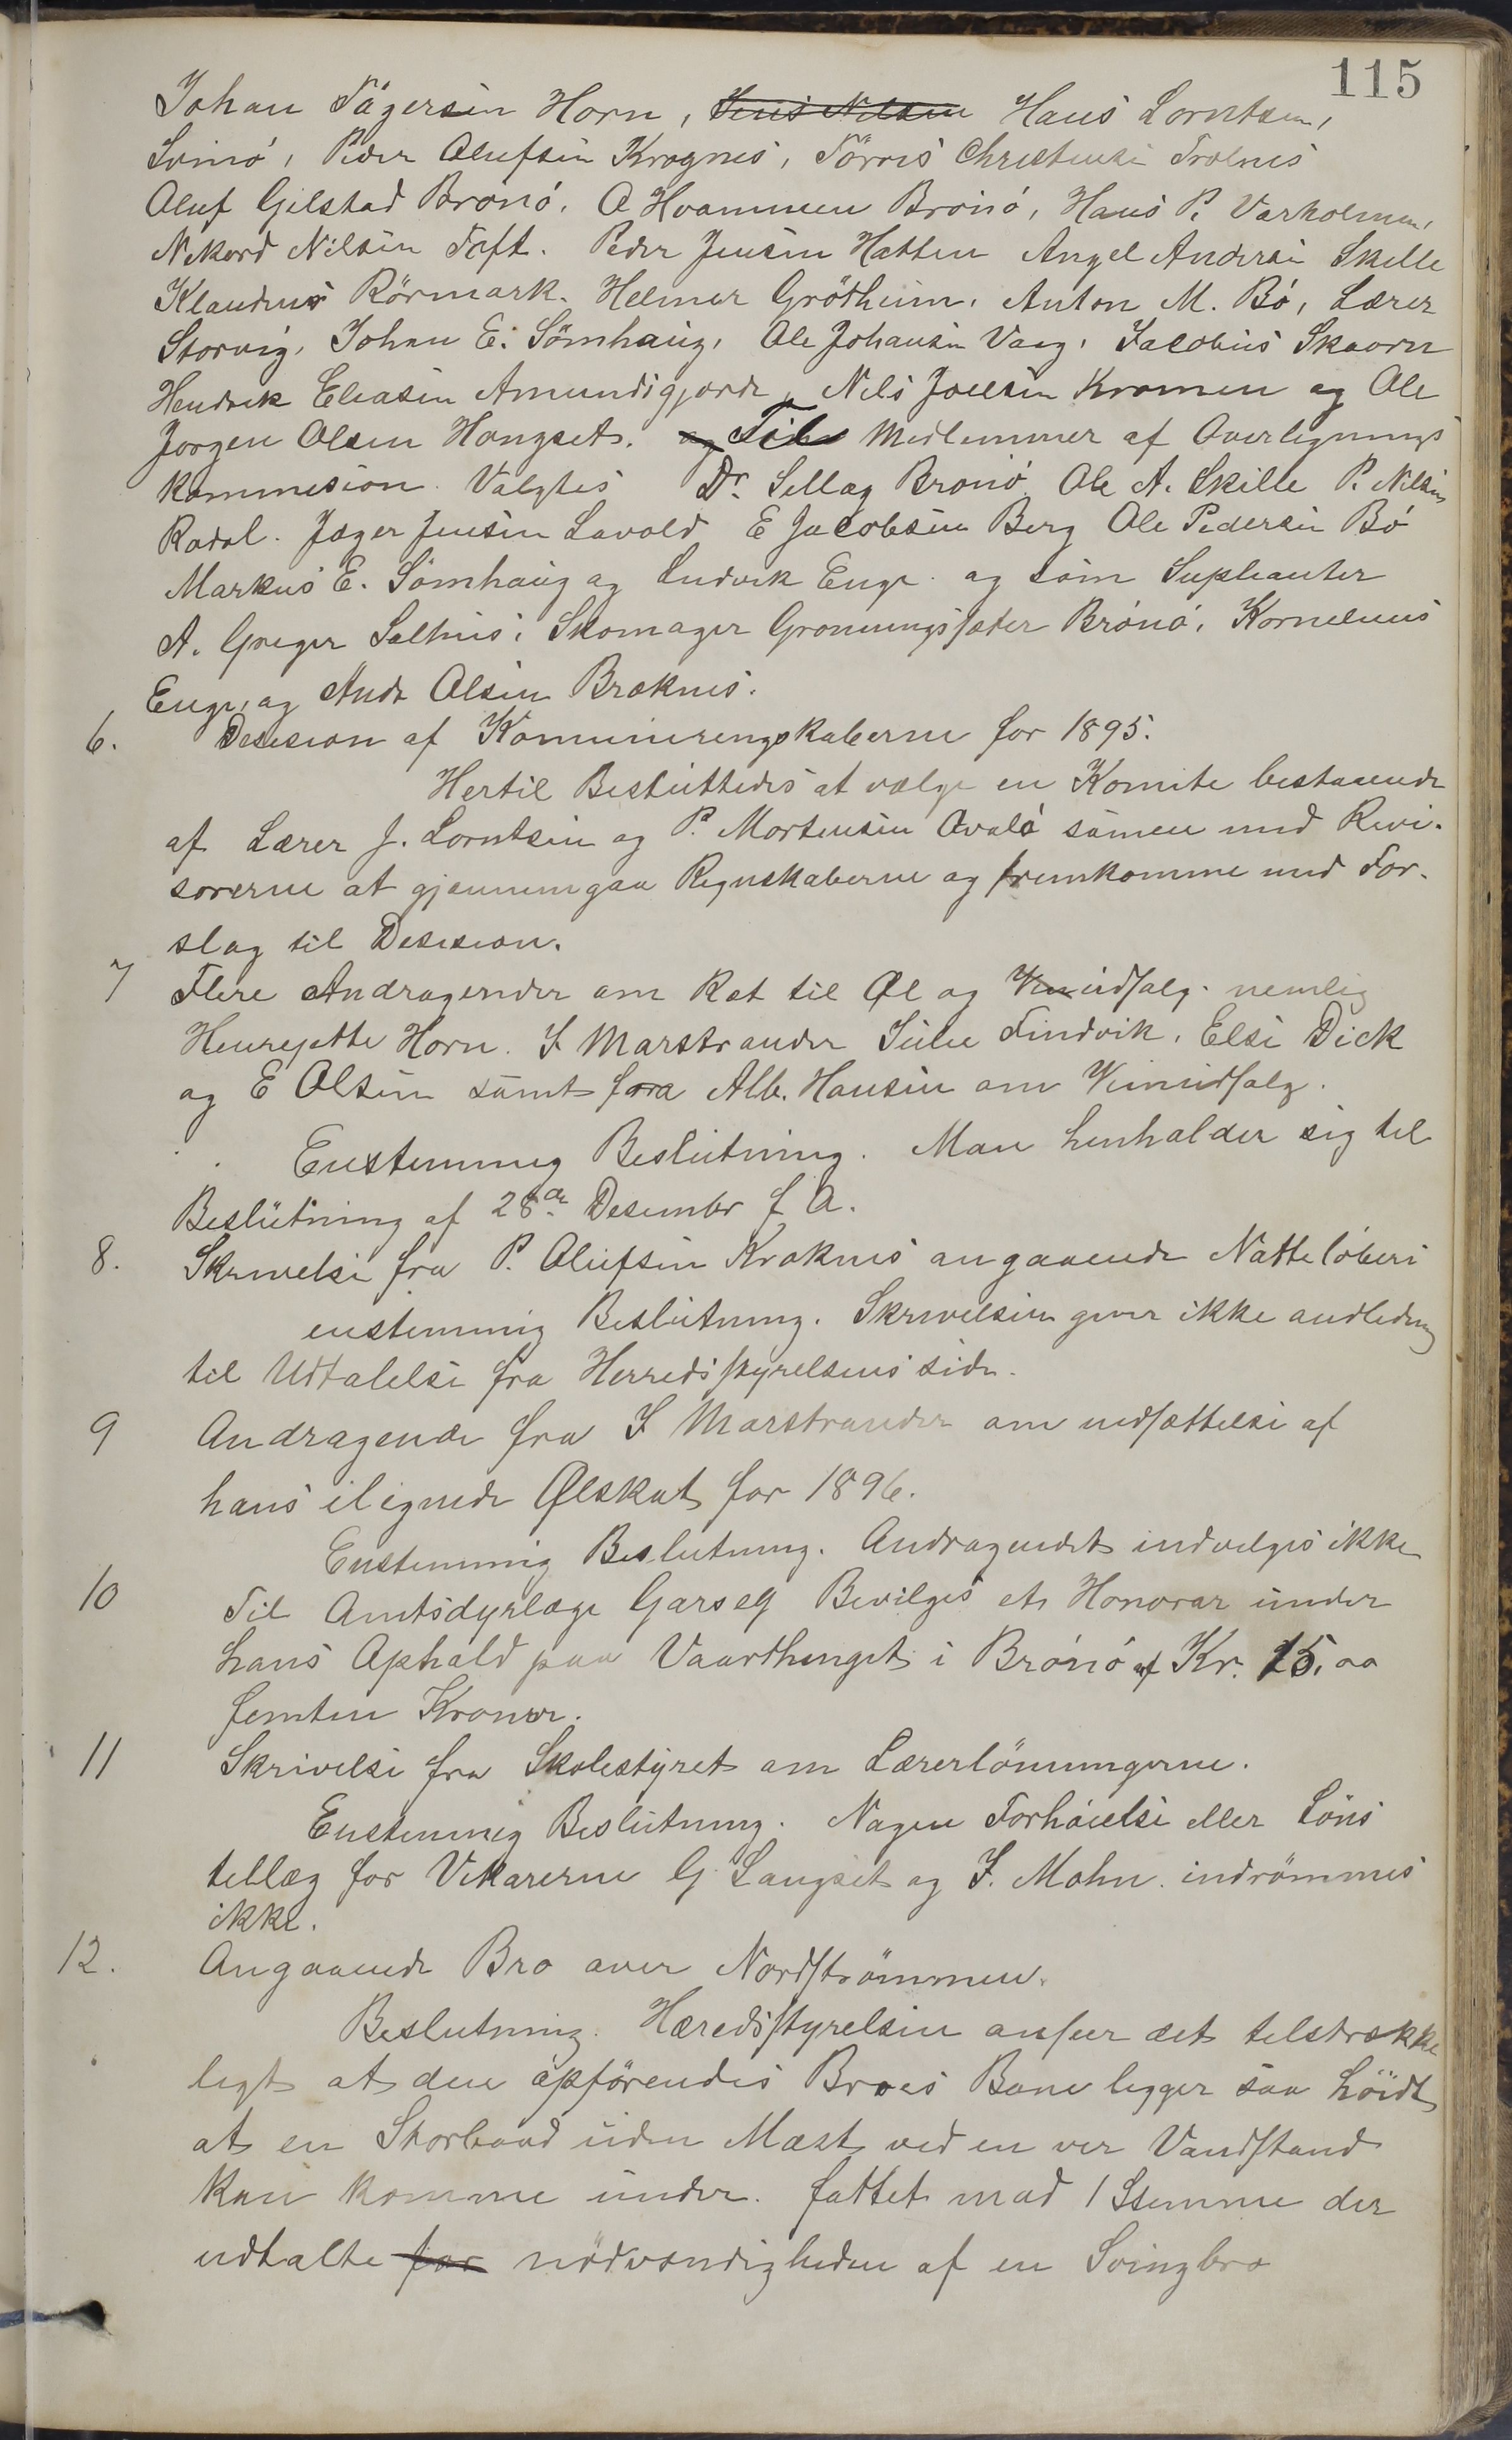 115
Johan Fagersen Horn, Jens Nilsen Hans Lorntsen,
Svinö, Peder Olufsen Krognes, Törris Christensen Trælnes
Oluf Gilstad Brönö. O Hvammen Brönö, Hans P. Varholmen,
Nekord Nilsen Toft. Peder Jensen Hatten Angel Andersen Skille
Klaudius Rörmark. Helmer Grötheim, Anton M. Bö, Lærer
Storvig, Johan E. Sömhaug, Ole Johansen Vaag, Jacobus Skaarn
Hendrik Eliasen Amundsgjorde, Nils Joelsen Kromen og Ole
Jorgen Olsen Hongset. og Til Medlemmer af Overlignings
kommesion Valgtes Dr. Sellæg Brönö Ole A. Skille P. Nilsen
Rodal. Jæger Jensen Lavold E Jacobsen Berg Ole Pedersen Bö
Markus E. Sömhaug og Ludvik Enge og som Supleanter
A. Greger Salhus, Skomager Gronningsæter Brönö, Kornelius
Enge, og Andr Olsen Bræknes.
6. Desesion af Kommuneregnskaberne for 1895.
Hertil Besluttedes at vælge en Komite bestaaende
af Lærer J. Lorntsen og P. Mortensen Qvalö samen med Revi-
sorerne at gjennemgaa Regnskaberne og fremkomme med For-
slag til Desesion.
7 Flere Andragender om Ret til Øl og Vinudsalg. nemlig
Henreyette Horn. S Marstrander Julie Tindvik, Elsi Dick
og E Olsen samt fra Alb. Hansen om Vinudsalg.
Enstemmig Beslutning. Man henholder sig til
Beslutning af 28de Desember f A.
8. Skrivelse fra P. Olufsen Kroknes angaaende Natteløberi
enstemmig Beslutning. Skrivelsen giver ikke andledning
til Udtalelse fra Herredsstyrelsens side.
9 Andragende fra S Marstrander om nedsættelse af
hans ilignede Ølskat for 1896.
Enstemmig Beslutning. Andragendet indvilges ikke
10 Til Amtsdyrlæge Garseg Bevilges et Honorar under
hans Ophold paa Vaarthinget i Brönö af Kr. 15,00
femten Kroner.
11 Skrivelse fra Skolestyret om Lærerlönningerne.
Enstemmig Beslutning. Nogen Forhöielse eller Löns
tillæg for Vikarerne G Langset og J. Mohn indrömmes
ikke.
12. Angaaende Bro over Nordströmmen.
Beslutning. Hæredsstyrelsen anseer det tilstrække
ligt at den opförendes Broes Bane ligger saa höidt
at en Storbaad uden Mast ved en ver Vandstand
kan komme under. fattet mod 1 Stemme der
udtalte for nödvendigheden af en Svingbro